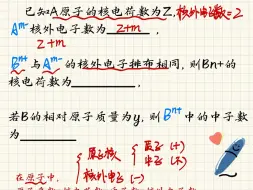 已知A原子的核电荷数为Z，核外电子数=Z
A^m-核外电子数为 Z+m ，
Z+m
B^n+与A^m-的核外电子排布相同，则Bn+的
核电荷数为
若B的相对原子质量为y，则B^n+中的中子数
为
原子核 质子 (+)
中子 (不)
核外电子 (-)
在原子中，